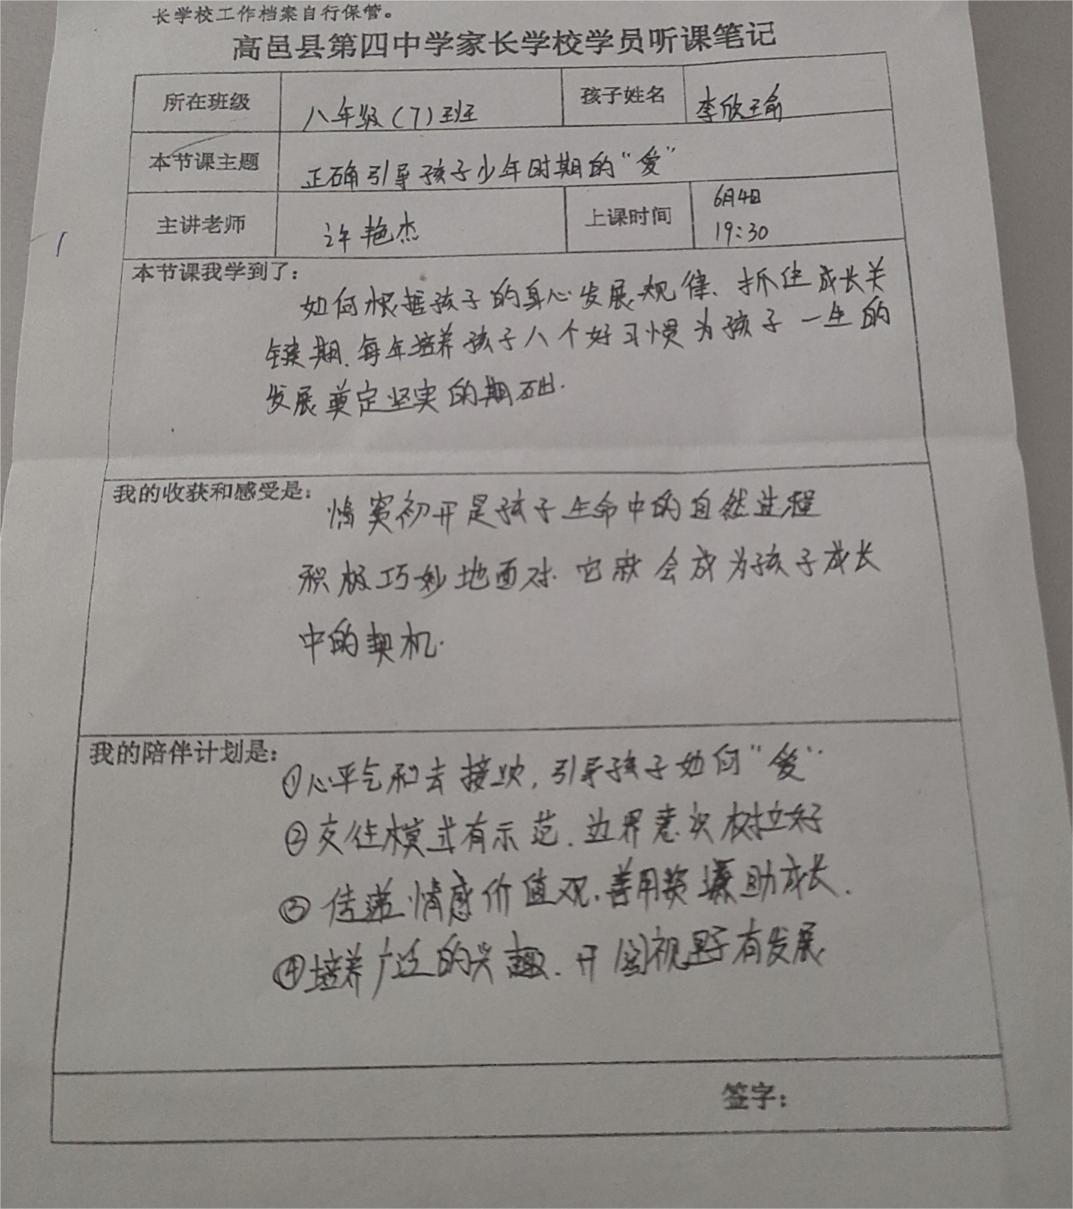 长学校工作档案自行保管。
高邑县第四中学家长学校学员听课笔记
所在班级 八年级(7)班 孩子姓名 李欣瑜
本节课主题 正确引导孩子少年时期的“爱”
主讲老师 许艳杰 上课时间 6月4日 19:30
本节课我学到了:
如何根据孩子的身心发展规律、抓住成长关
键期、每年培养孩子八个好习惯为孩子一生的
发展奠定坚实的期础.
我的收获和感受是:
情窦初开是孩子生命中的自然进程
积极巧妙地面对.它就会成为孩子成长
中的契机.
我的陪伴计划是:
①心平气和去接纳,引导孩子如何“爱”
②交往模式有示范.边界意识树立好
③传递情感价值观.善用资源助成长.
④培养广泛的兴趣.开阔视野有发展
签字: